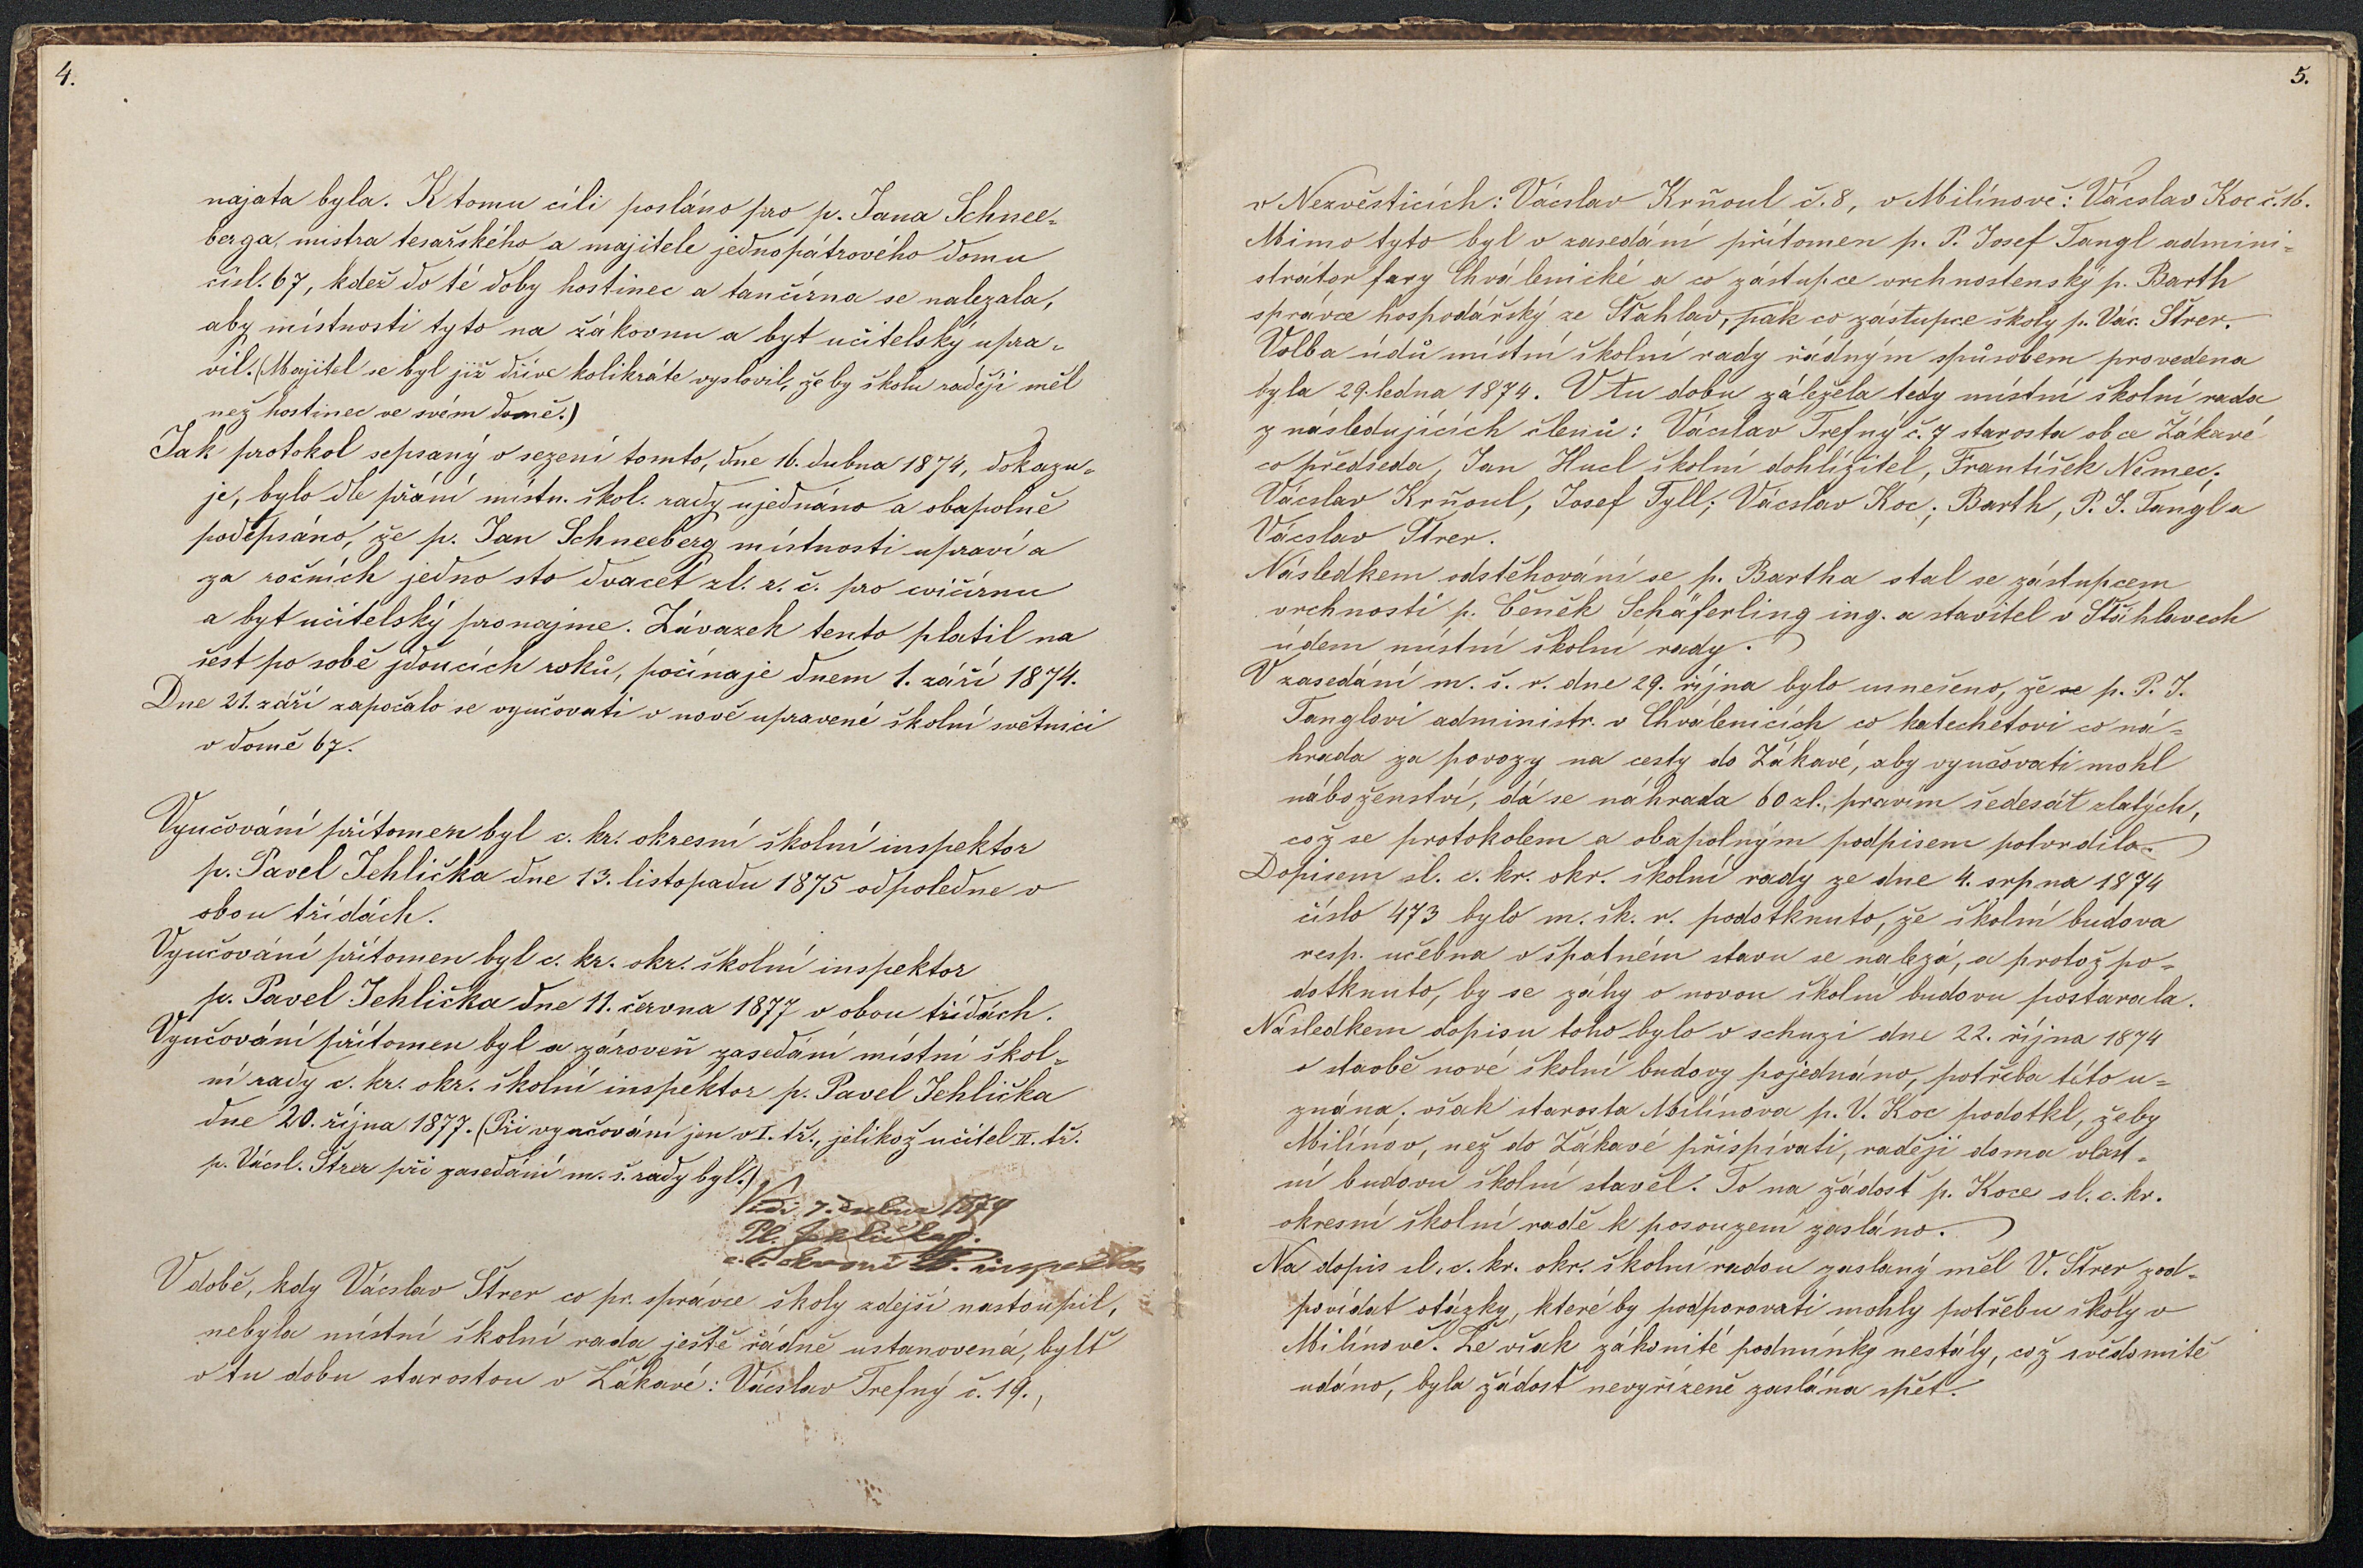 4.
najata byla. K tomu cíli posláno pro p. Jana Schnee-
berga, mistra tesařského a majitele jednopátrového domu
čísl. 67, kdež do té doby hostinec a tančírna se nalezala,
aby místnosti tyto na žákovnu a byt učitelský upra-
vil. (Majitel se byl již dříve kolikráte vyslovil, že by školu raději měl
než hostinec ve svém domě.)
Jak protokol sepsaný o sezení tomto, dne 16. dubna 1874, dokazu-
je, bylo dle přání místn. škol. rady ujednáno a obapolně
podepsáno, že p. Jan Schneeberg místnosti upraví a
za ročních jedno sto dvacet zl. r. č. pro cvičírnu
a byt učitelský pronajme. Závazek tento platil na
šest po sobě jdoucích roků, počínaje dnem 1. září 1874.
Dne 21. září započalo se vyučovati v nově upravené školní světnici
v domě 67.
Vyučování přítomen byl c. kr. okresní školní inspektor
p. Pavel Jehlička dne 13. listopadu 1875 odpoledne v
obou třídách.
Vyučování přítomen byl c. kr. okr. školní inspektor
p. Pavel Jehlička dne 11. června 1877 v obou třídách.
Vyučování přítomen byl a zároveň zasedání místní škol-
ní rady c. kr. okr. školní inspektor p. Pavel Jehlička
dne 20. října 1877. (Při vyučování jen v I. tř., jelikož učitel II. tř.
p. Vácsl. Štrer při zasedání m. š. rady byl.)
Vidi 7. dubna 1879
Pl. Jehlička
c. k. okresní šk. inspektor
V době, kdy Vácslav Štrer co pr. správce školy zdejší nastoupil,
nebyla místní školní rada ještě řádně ustanovená, bylť
v tu dobu starostou v Žákavé: Vácslav Trefný č. 19.,
5.
v Nezvěsticích: Vácslav Krňoul č. 8, v Milínově: Vácslav Koc č. 16.
Mimo tyto byl v zasedání přítomen p. P. Josef Tangl admini-
strátor fary Chválenické a co zástupce vrchnostenský p. Barth
správce hospodářský ze Šťahlav, pak co zástupce školy p. Vác. Štrer.
Volba údů místní školní rady řádným spůsobem provedena
byla 29. ledna 1874. V tu dobu záležela tedy místní školní rada
z následujících členů: Vácslav Trefný č. 7 starosta obce Žákavé
co předseda, Jan Hucl školní dohlížitel, František Nemec;
Vácslav Krňoul, Josef Tyll; Vácslav Koc; Barth, P. J. Tangl a
Vácslav Štrer.
Následkem odstěhování se p. Bartha stal se zástupcem
vrchnosti p. Čeněk Schäferling ing. a stavitel v Šťáhlavech
údem místní školní rady.
V zasedání m. š. r. dne 29. října bylo usnešeno, že se p. P. J.
Tanglovi administr. v Chválenicích co katechetovi co ná-
hrada za povozy na cesty do Žákavé, aby vyučovati mohl
náboženství, dá se náhrada 60 zl., pravím šedesát zlatých,
což se protokolem a obapolným podpisem potvrdilo.
Dopisem sl. c. kr. okr. školní rady ze dne 4. srpna 1874
číslo 473 bylo m. šk. r. podotknuto, že školní budova
resp. učebna v špatném stavu se nalezá, a protož po-
dotknuto, by se záhy o novou školní budovu postarala.
Následkem dopisu toho bylo v schuzi dne 22. října 1874
o stavbě nové školní budovy pojednáno, potřeba této u-
znána; však starosta Milínova p. V. Koc podotkl, žeby
Milínov, než do Žákavé přispívati, raději doma vlast-
ní budovu školní stavěl. To na žádost p. Koce sl. c. kr.
okresní školní radě k posouzení zasláno.
Na dopis sl. c. kr. okr. školní radou zaslaný měl V. Štrer zod-
povídat otázky, které by podporovati mohly potřebu školy v
Milínově. Že však zákonité podmínky nestály, což svědomitě
udáno, byla žádosť nevyřízeně zaslána spět.